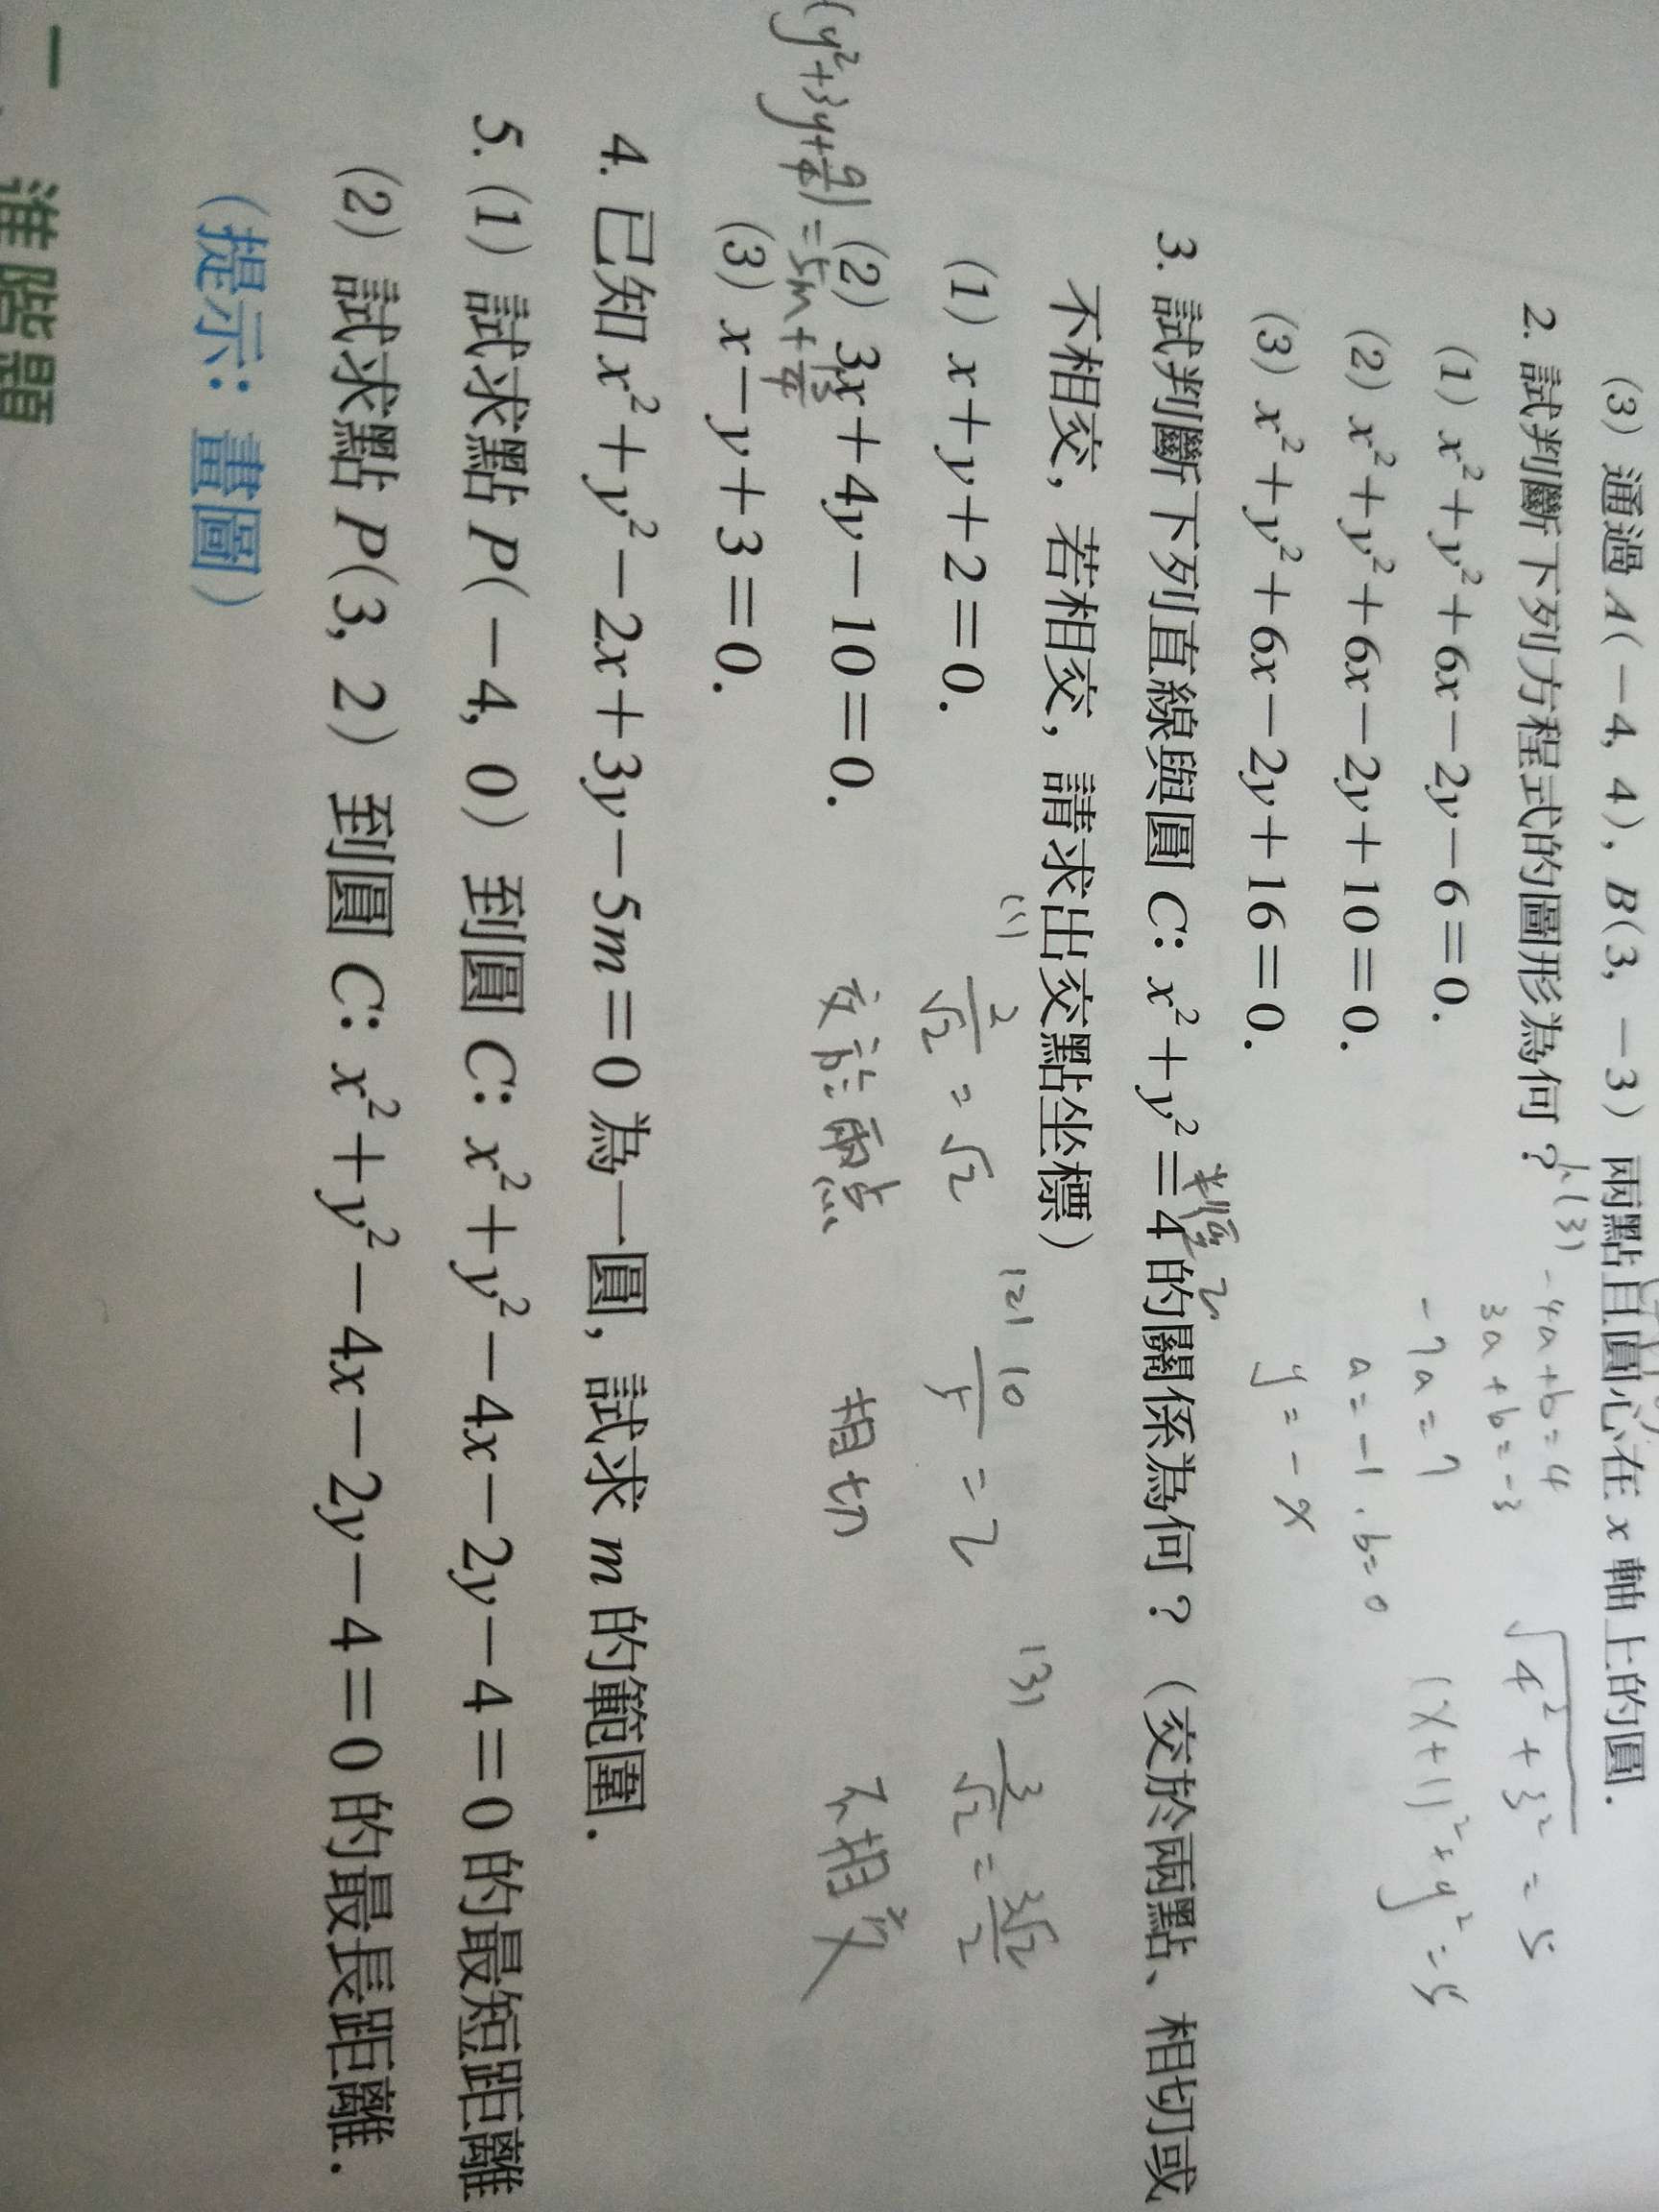 (3) 通過 A(－4, 4), B(3, －3) 兩點且圓心在 x 軸上的圓.
2. 試判斷下列方程式的圖形為何？
(1) x²＋y²＋6x－2y－6＝0.
(2) x²＋y²＋6x－2y＋10＝0.
(3) x²＋y²＋6x－2y＋16＝0.
(3) -4a+b=4
3a+b=-3
-7a=7
a=-1. b=0
y=-x
√4²+3² = 5
(x+1)²+y²=5
3. 試判斷下列直線與圓 C: x²＋y²＝4 的關係為何？（交於兩點、相切或
不相交，若相交，請求出交點坐標）
半徑 2
(1) x＋y＋2＝0.
(2) 3x＋4y－10＝0.
(3) x－y＋3＝0.
(1) 2/√2 = √2
交於兩点
(2) 10/5 = 2
相切
(3) 3/√2 = 3√2/2
不相交
(y²+3y+9/4) = 5m+13/4
4. 已知 x²＋y²－2x＋3y－5m＝0 為一圓，試求 m 的範圍.
5. (1) 試求點 P(－4, 0) 到圓 C: x²＋y²－4x－2y－4＝0 的最短距離
(2) 試求點 P(3, 2) 到圓 C: x²＋y²－4x－2y－4＝0 的最長距離.
（提示：畫圖）
進階題